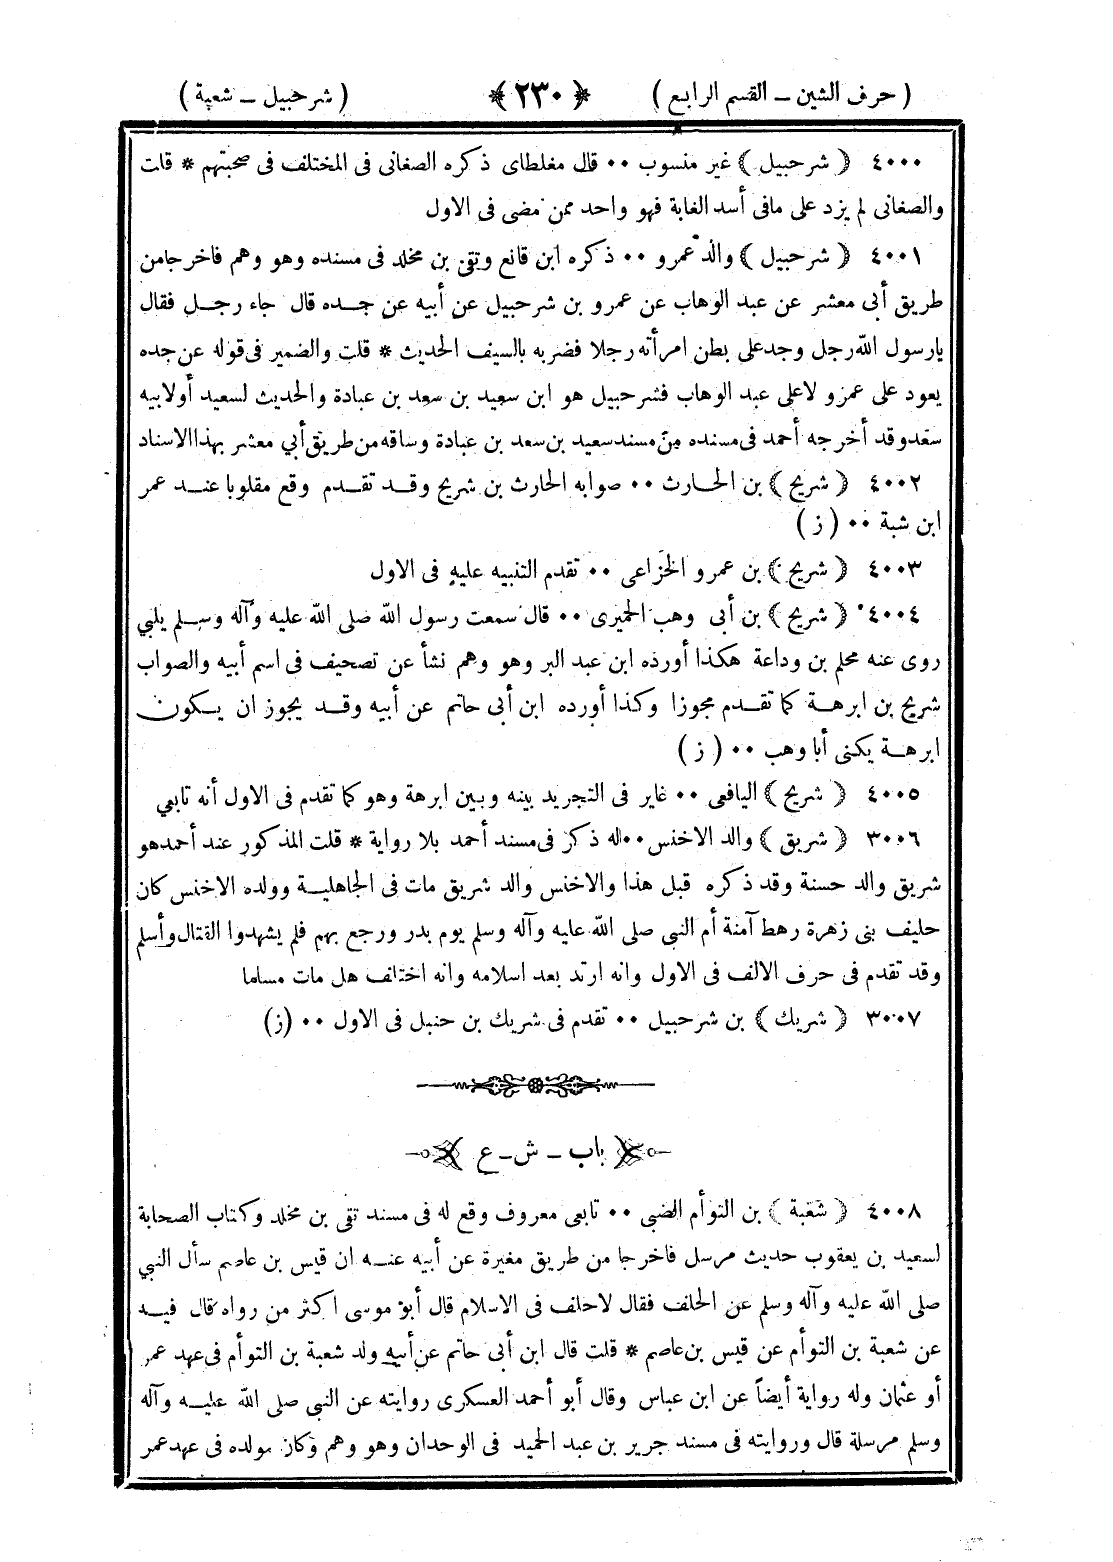 ( حرف الشين – القسم الرابع ) ﴿ ٢٣٠ ﴾ ( شرحبيل – شعبة )
٤٠٠٠ ﴿ شرحبيل ﴾ غير منسوب ٠٠ قال مغلطاى ذكره الصغانى فى المختلف فى صحبتهم * قلت
والصغانى لم يزد على مافى أسد الغابة فهو واحد ممن مضى فى الاول
٤٠٠١ ﴿ شرحبيل ﴾ والد عمرو ٠٠ ذكره ابن قانع وبقى بن مخلد فى مسنده وهو وهم فاخرجا من
طريق أبى معشر عن عبد الوهاب عن عمرو بن شرحبيل عن أبيه عن جده قال جاء رجل فقال
يارسول الله رجل وجد على بطن امرأته رجلا فضربه بالسيف الحديث * قلت والضمير فى قوله عن جده
يعود على عمرو لا على عبد الوهاب فشرحبيل هو ابن سعيد بن سعد بن عبادة والحديث لسعيد أولابيه
سعد وقد أخرجه أحمد فى مسنده من مسند سعيد بن سعد بن عبادة وساقه من طريق أبي معشر بهذا الاسناد
٤٠٠٢ ﴿ شريح ﴾ بن الحارث ٠٠ صوابه الحارث بن شريح وقد تقدم وقع مقلوبا عند عمر
ابن شبة ٠٠ ( ز )
٤٠٠٣ ﴿ شريح ﴾ بن عمرو الخزاعى ٠٠ تقدم التنبيه عليه فى الاول
٤٠٠٤ ﴿ شريح ﴾ بن أبى وهب الحميرى ٠٠ قال سمعت رسول الله صلى الله عليه وآله وسلم يلبي
روى عنه محلم بن وداعة هكذا أورده ابن عبد البر وهو وهم نشأ عن تصحيف فى اسم أبيه والصواب
شريح بن ابرهة كما تقدم مجوزا وكذا أورده ابن أبى حاتم عن أبيه وقد يجوز ان يكون
ابرهة يكنى أبا وهب ٠٠ ( ز )
٤٠٠٥ ﴿ شريح ﴾ اليافعى ٠٠ غاير فى التجريد بينه وبين ابرهة وهو كما تقدم فى الاول أنه تابعي
٣٠٠٦ ﴿ شريق ﴾ والد الاخنس ٠٠ له ذكر فى مسند أحمد بلا رواية * قلت المذكور عند أحمد هو
شريق والد حسنة وقد ذكره قبل هذا والاخنس والد شريق مات فى الجاهلية وولده الاخنس كان
حليف بنى زهرة رهط آمنة أم النبي صلى الله عليه وآله وسلم يوم بدر ورجع بهم فلم يشهدوا القتال وأسلم
وقد تقدم فى حرف الالف فى الاول وانه ارتد بعد اسلامه وانه اختلف هل مات مسلما
٣٠٠٧ ﴿ شريك ﴾ بن شرحبيل ٠٠ تقدم فى شريك بن حنبل فى الاول ٠٠ (ز)
باب – ش – ع
٤٠٠٨ ﴿ شعبة ﴾ بن التوأم الضبى ٠٠ تابعى معروف وقع له فى مسند تقى بن مخلد وكتاب الصحابة
لسعيد بن يعقوب حديث مرسل فاخرجا من طريق مغيرة عن أبيه عنه ان قيس بن عاصم سأل النبي
صلى الله عليه وآله وسلم عن الحلف فقال لاحلف فى الاسلام قال أبو موسى اكثر من رواه قال فيه
عن شعبة بن التوأم عن قيس بن عاصم * قلت قال ابن أبى حاتم عن أبيه ولد شعبة بن التوأم فى عهد عمر
أو عثمان وله رواية أيضاً عن ابن عباس وقال أبو أحمد العسكرى روايته عن النبي صلى الله عليه وآله
وسلم مرسلة قال وروايته فى مسند جرير بن عبد الحميد فى الوحدان وهو وهم وكان مولده فى عهد عمر